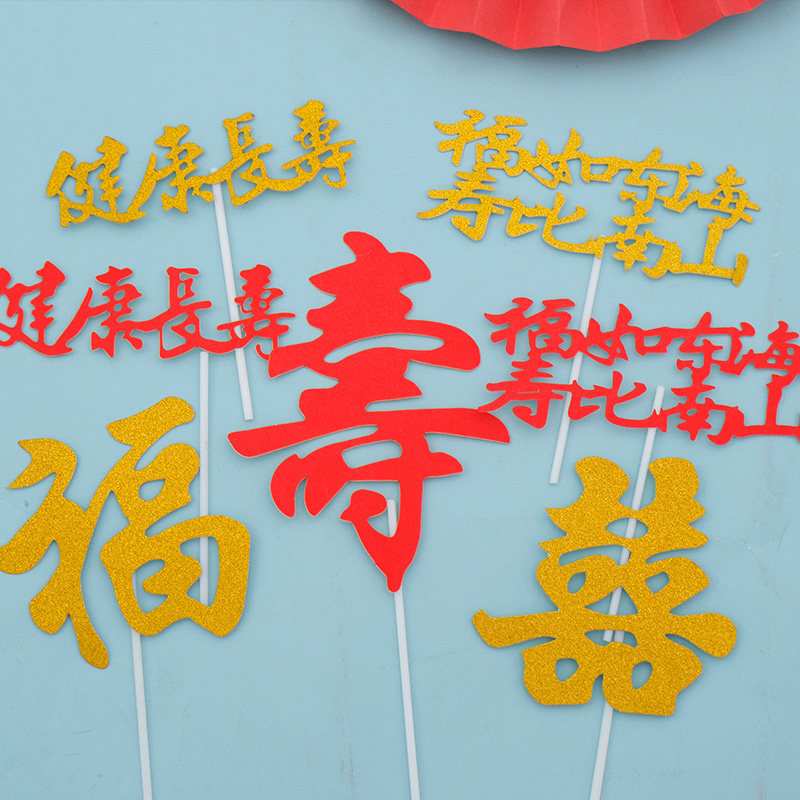 健康長壽
福如东海
寿比南山
健康長壽
福如东海
寿比南山
寿
福
囍